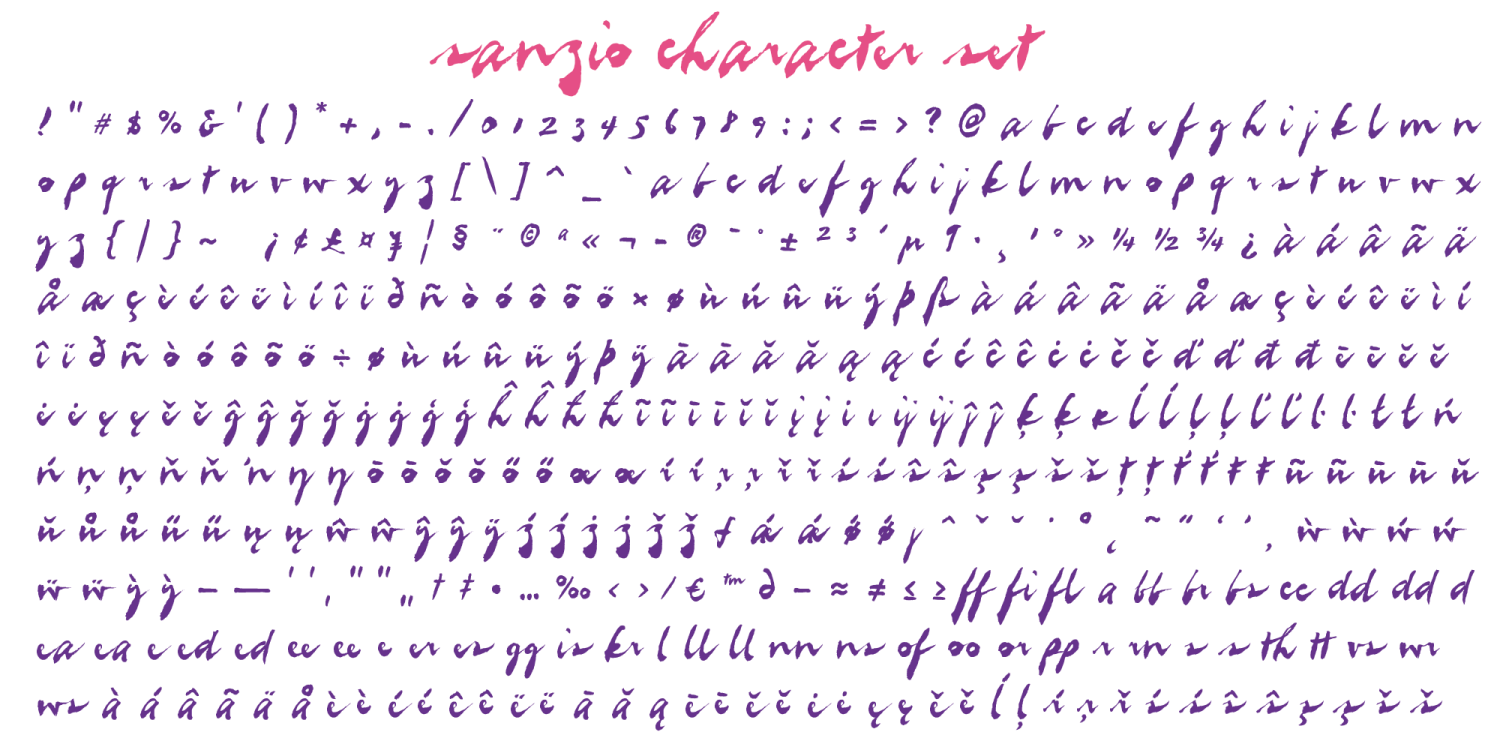 sanzio character set
! " # $ % & ' ( ) * + , - . / 0 1 2 3 4 5 6 7 8 9 : ; < = > ? @ a b c d e f g h i j k l m n
o p q r s t u v w x y z [ \ ] ^ _ ` a b c d e f g h i j k l m n o p q r s t u v w x
y z { | } ~ ¡ ¢ £ ¤ ¥ ¦ § ¨ © ª « ¬ - ® ¯ ° ± ² ³ ´ µ ¶ · ¸ ¹ º » ¼ ½ ¾ ¿ à á â ã ä
å æ ç è é ê ë ì í î ï ð ñ ò ó ô õ ö × ø ù ú û ü ý þ ß à á â ã ä å æ ç è é ê ë ì í
î ï ð ñ ò ó ô õ ö ÷ ø ù ú û ü ý þ ÿ ā ā ă ă ą ą ć ć ĉ ĉ ċ ċ č č ď ď đ đ ē ē ĕ ĕ
ė ė ę ę ě ě ĝ ĝ ğ ğ ġ ġ ģ ģ ĥ ĥ ħ ħ ĩ ĩ ī ī ĭ ĭ į į i ı ĳ ĳ ĵ ĵ ķ ķ ĸ ĺ ĺ ļ ļ ľ ľ ŀ ŀ ł ł ń
ń ņ ņ ň ň ŉ ŋ ŋ ō ō ŏ ŏ ő ő œ œ ŕ ŕ ŗ ŗ ř ř ś ś ŝ ŝ ş ş š š ţ ţ ť ť ŧ ŧ ũ ũ ū ū ŭ
ŭ ů ů ű ű ų ų ŵ ŵ ŷ ŷ ÿ ź ź ż ż ž ž ƒ ǽ ǽ ǿ ǿ ȷ ˆ ˇ ˘ ˙ ˚ ˛ ˜ ˝ ‘ ’ , ẁ ẁ ẃ ẃ
ẅ ẅ ỳ ỳ – — ‘ ’ ‚ “ ” „ † ‡ • … ‰ ‹ › ⁄ € ™ ∂ − ≈ ≠ ≤ ≥ ff fi fl a bb br bs cc dd dd d
ea ea e ed ed ee ee e er es gg is kr l ll ll nn ns of oo or pp r rn s s th tt vs wr
ws à á â ã ä å è è é é ê ê ë ë ā ă ą ē ē ĕ ĕ ė ė ę ę ě ě ĺ ļ ŕ ŗ ř ś ś ŝ ŝ ş ş š š